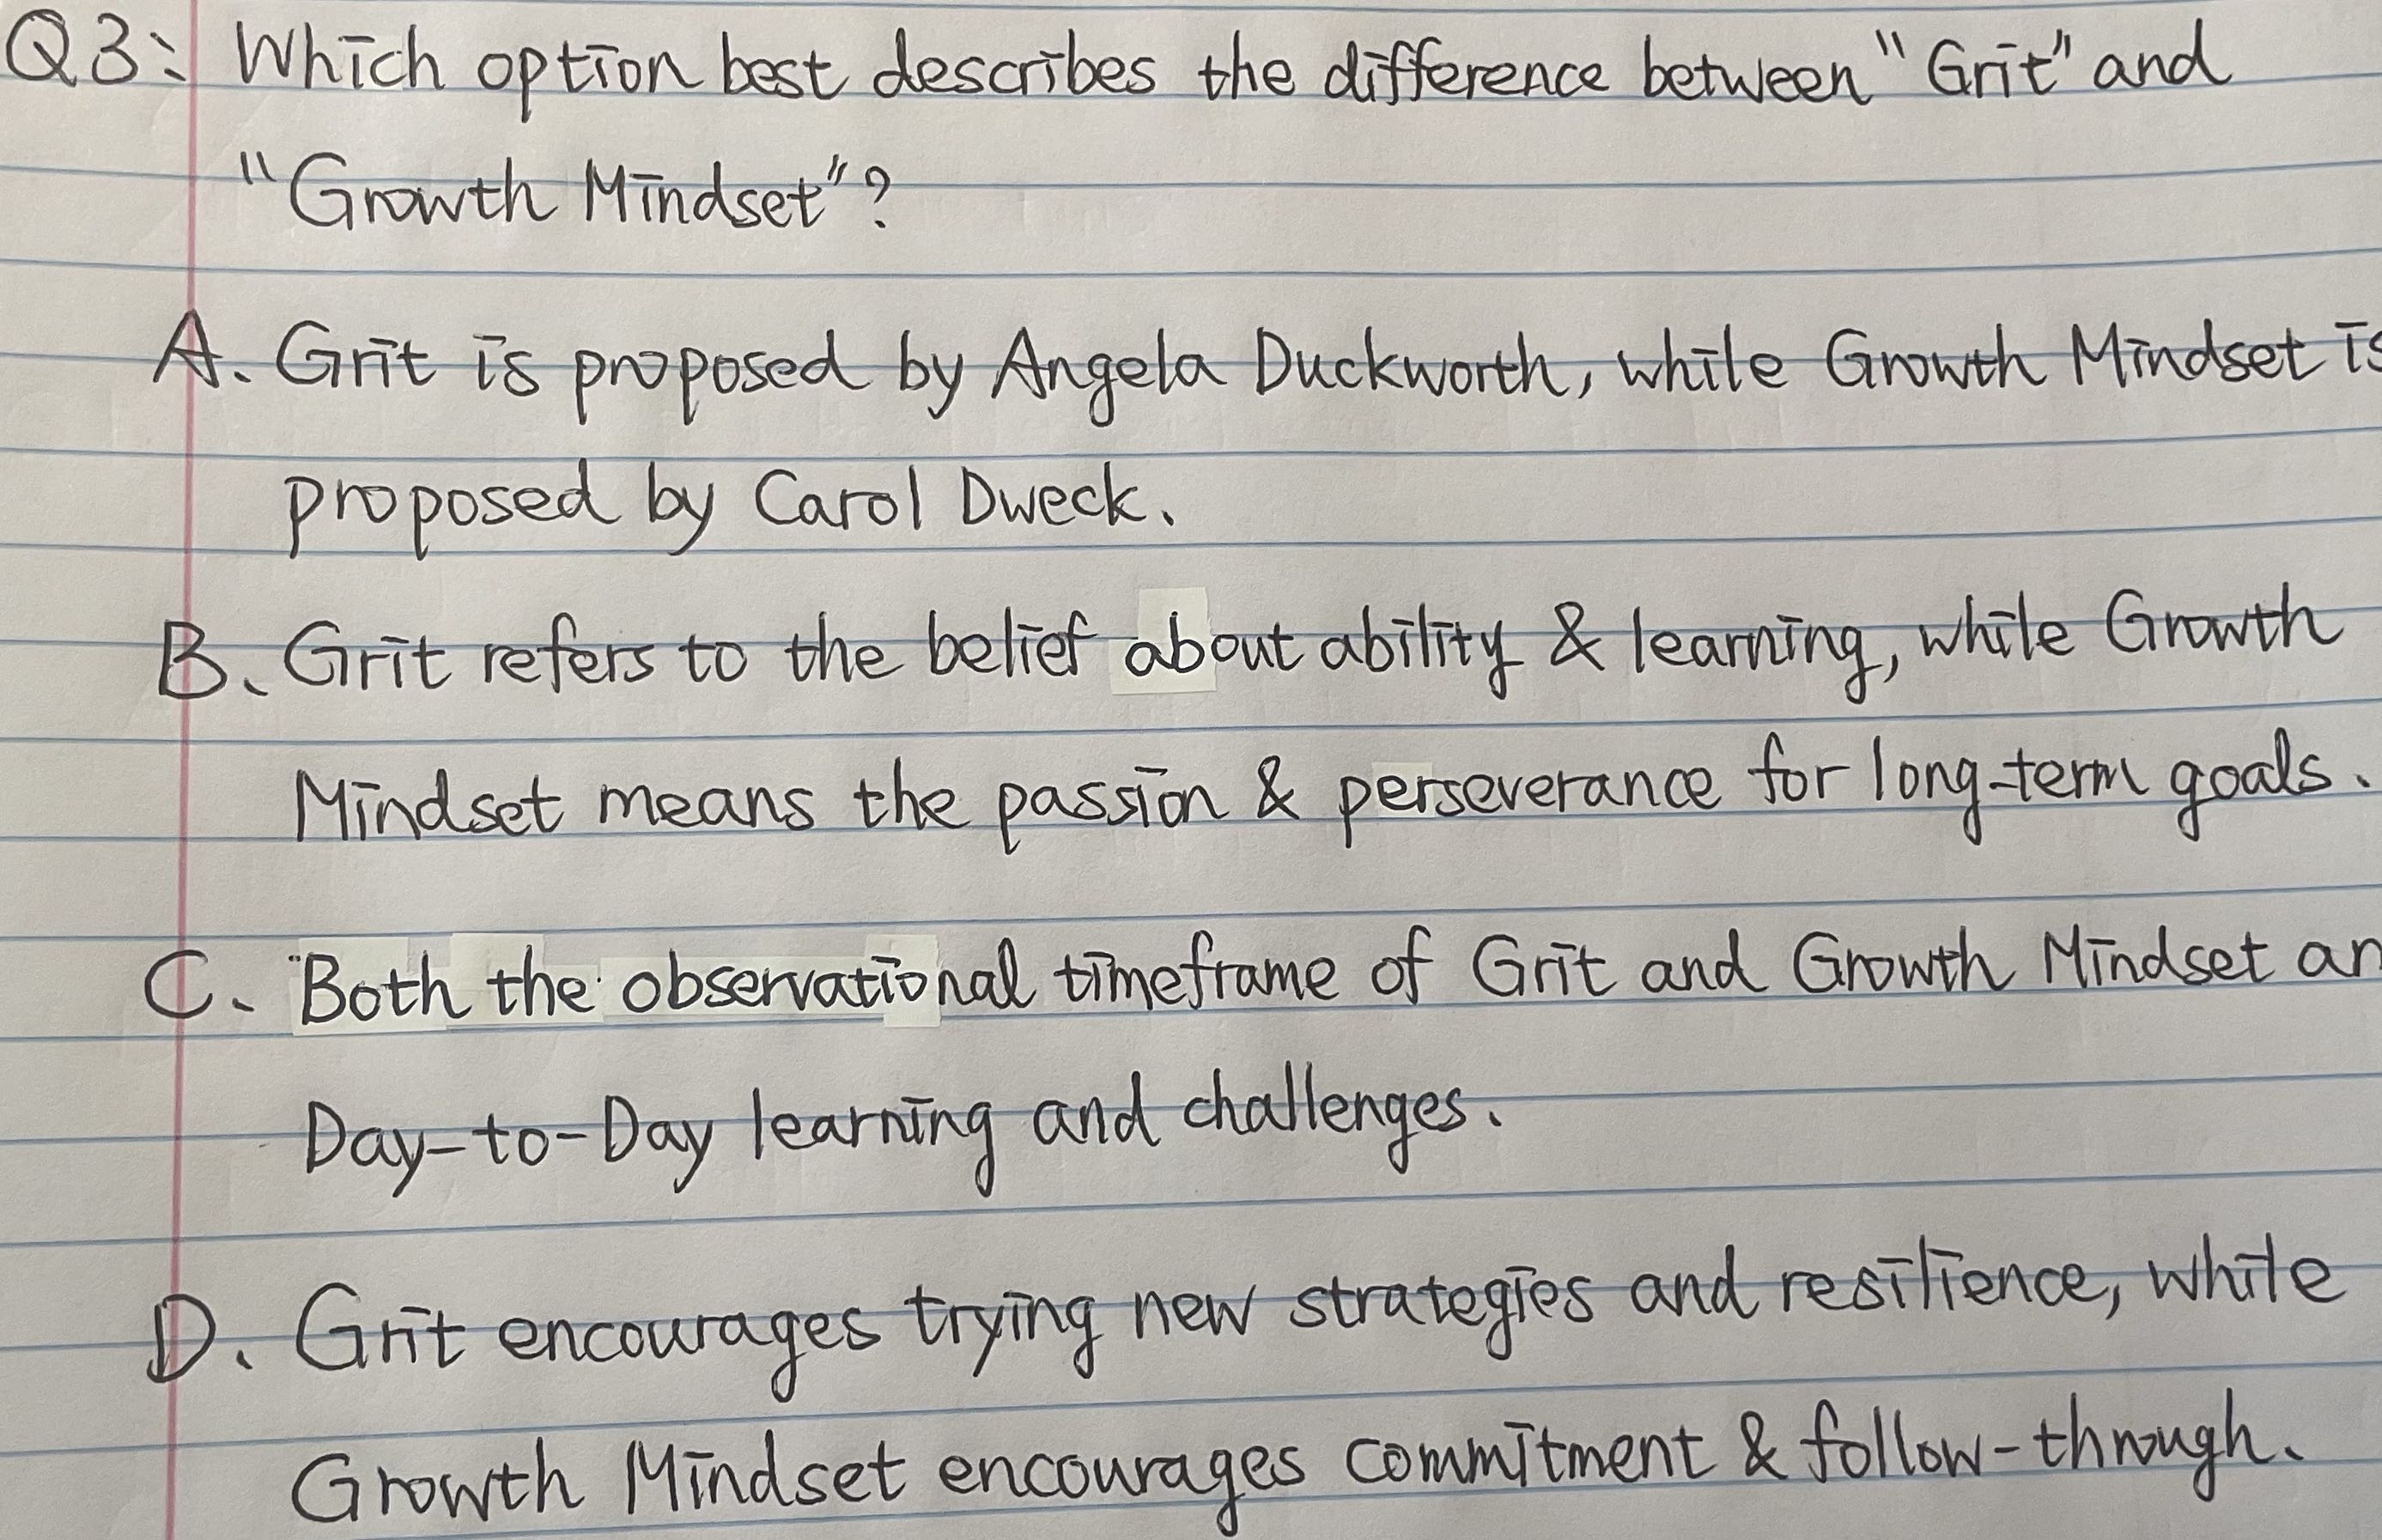 Q3: Which option best describes the difference between "Grit" and
"Growth Mindset"?
A. Grit is proposed by Angela Duckworth, while Growth Mindset is
proposed by Carol Dweck.
B. Grit refers to the belief about ability & learning, while Growth
Mindset means the passion & perseverance for long-term goals.
C. Both the observational timeframe of Grit and Growth Mindset ar
Day-to-Day learning and challenges.
D. Grit encourages trying new strategies and resilience, while
Growth Mindset encourages commitment & follow-through.